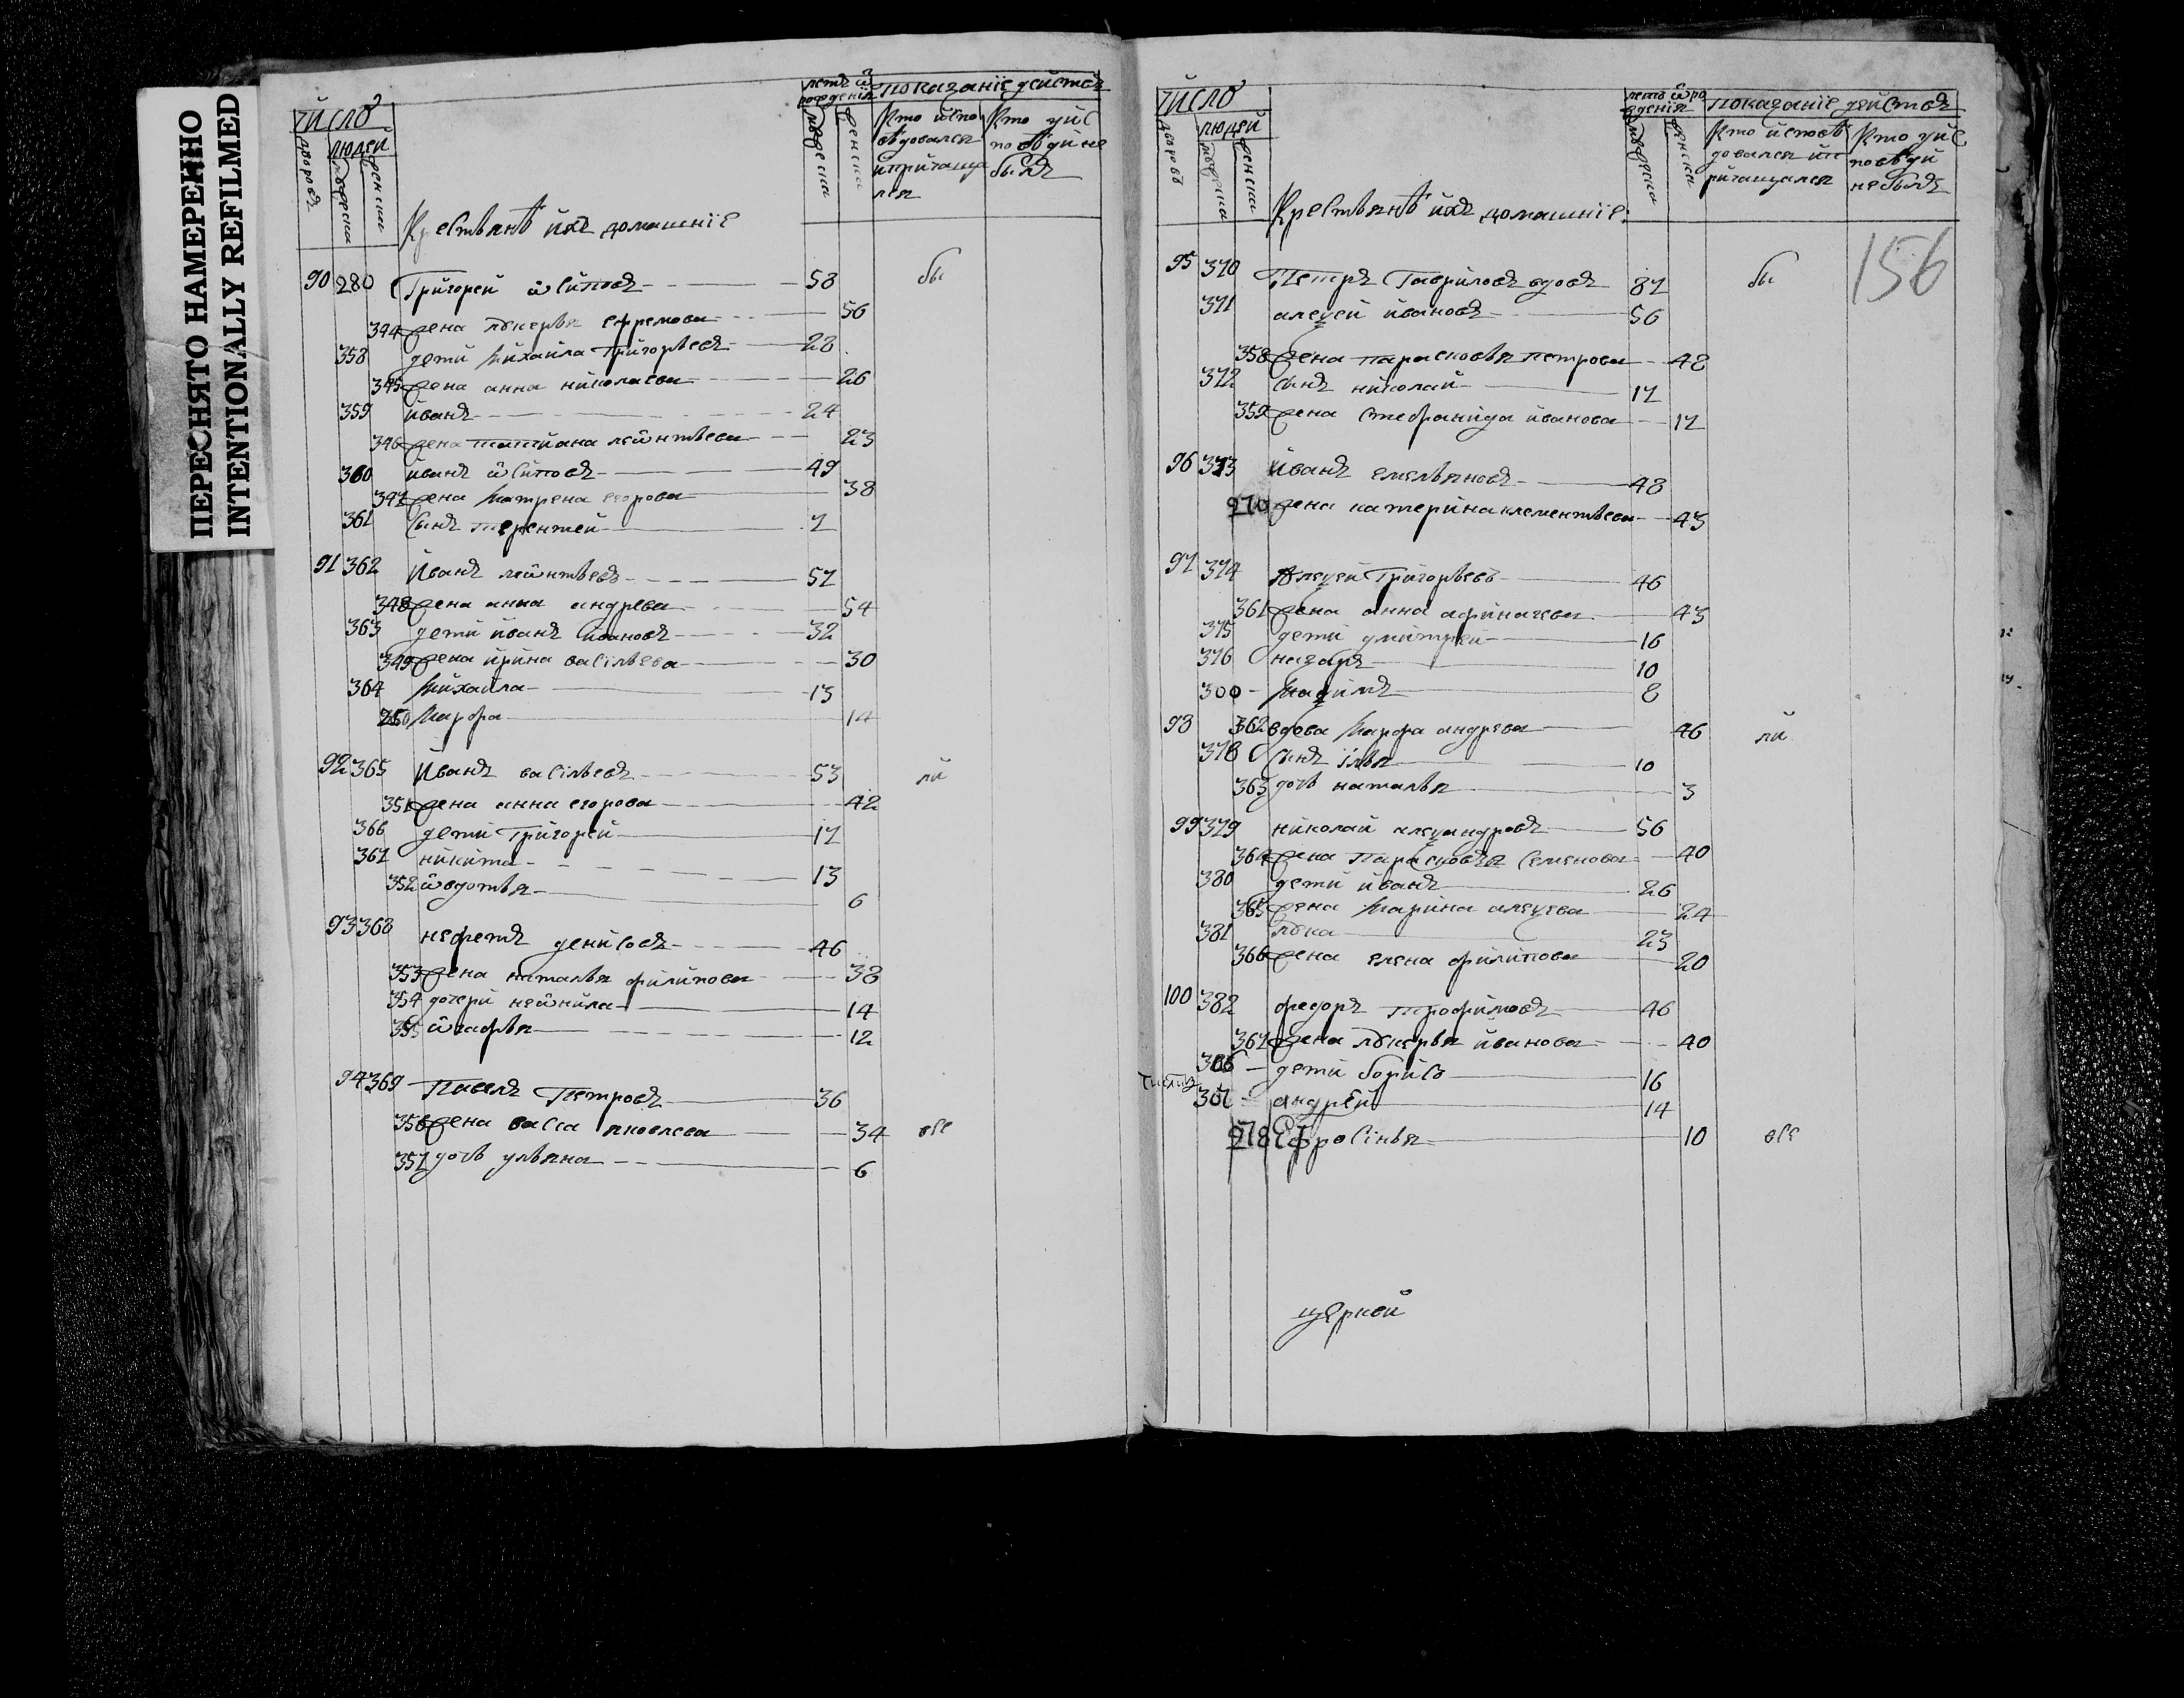 ПЕРЕСНЯТО НАМЕРЕННО
INTENTIONALLY REFILMED
число
людей
дворовъ
мужеска
женска
Крестьянѣ ихъ домашніе
летъ ѿ
рождения
мужеска
женска
показаніе действъ
Кто испо
вѣдовался
и причаща
лся
Кто у ис
повѣди не
былъ
90 280 Григорей ѡсиповъ 58 бы
344 жена лукерья ефремова 56
358 дети Михайла Григорьевъ 28
345 жена анна николаева 26
359 иванъ 24
346 жена татиана леѡнтьева 23
360 иванъ ѡсиповъ 49
347 жена Матрена егорова 38
361 сынъ терентей 7
91 362 Иванъ леѡнтьевъ 57
348 жена анна андрева 54
363 дети иванъ ивановъ 32
349 жена ирина васільева 30
364 Михайла 13
350 Марфа 14
92 365 Иванъ васільевъ 53 ли
351 жена анна егорова 42
366 дети Григорей 17
367 никита 13
352 ѡвдотья 6
93 368 нефетъ денисовъ 46
353 жена наталья филипова 38
354 дочери неѡнила 14
355 ѡгафья 12
94 369 Павелъ Петровъ 36
356 жена васса яковлева 34 все
357 дочь ульяна 6
число
людей
дворовъ
мужеска
женска
Крестьянѣ ихъ домашніе
летъ ѿ ро
ждения
мужеска
женска
показаніе действъ
Кто исповѣ
довался и п
ричащался
Кто у ис
повѣди
не былъ
156
95 370 Петръ Гавриловъ вдовъ 87 бы
371 алеѯей ивановъ 56
358 жена парасковья петрова 48
372 сынъ николай 17
359 жена Стефанида иванова 17
96 373 Иванъ емельяновъ 48
270 жена катерина клементьева 43
97 374 Алеѯей Григорьевъ 46
361 жена анна афиначева 43
375 дети дмитрей 16
376 назаръ 10
300 Маѯимъ 8
98 362 вдова Марфа андрева 46 ли
378 Сынъ ілья 10
363 дочь наталья 3
99 379 николай алеѯандровъ 56
364 жена Парасковья Семенова 40
380 дети иванъ 26
365 жена Марина алеѯева 24
381 лука 23
366 жена елена филипова 20
100 382 федоръ трофимовъ 46
367 жена лукерья иванова 40
306 дети борисъ 16
307 андрей 14
278 Ефросінья 10 все
церкви